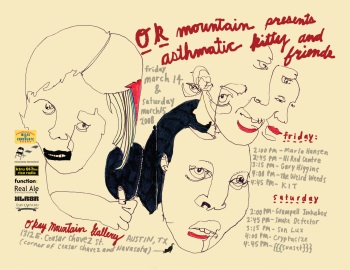 OK mountain presents
asthmatic kitty and
friends
friday
march 14
&
saturday
march 15
2008
friday:
2:00 PM - Marla Hansen
2:45 PM - Hi Red Center
3:15 PM - Gary Higgins
4:00 PM - The Weird Weeds
4:45 PM - KIT
saturday
2:00 PM - Grampall Jookabox
2:45 PM -
3:15 PM - Son Lux
4:00 PM - Cryptacize
4:45 PM - {{{Sunset}}}
function
Real Ale
Okay Mountain Gallery
1312 E. Cesar Chavez St. AUSTIN, TX
(corner of Cesar Chavez and Navasota)